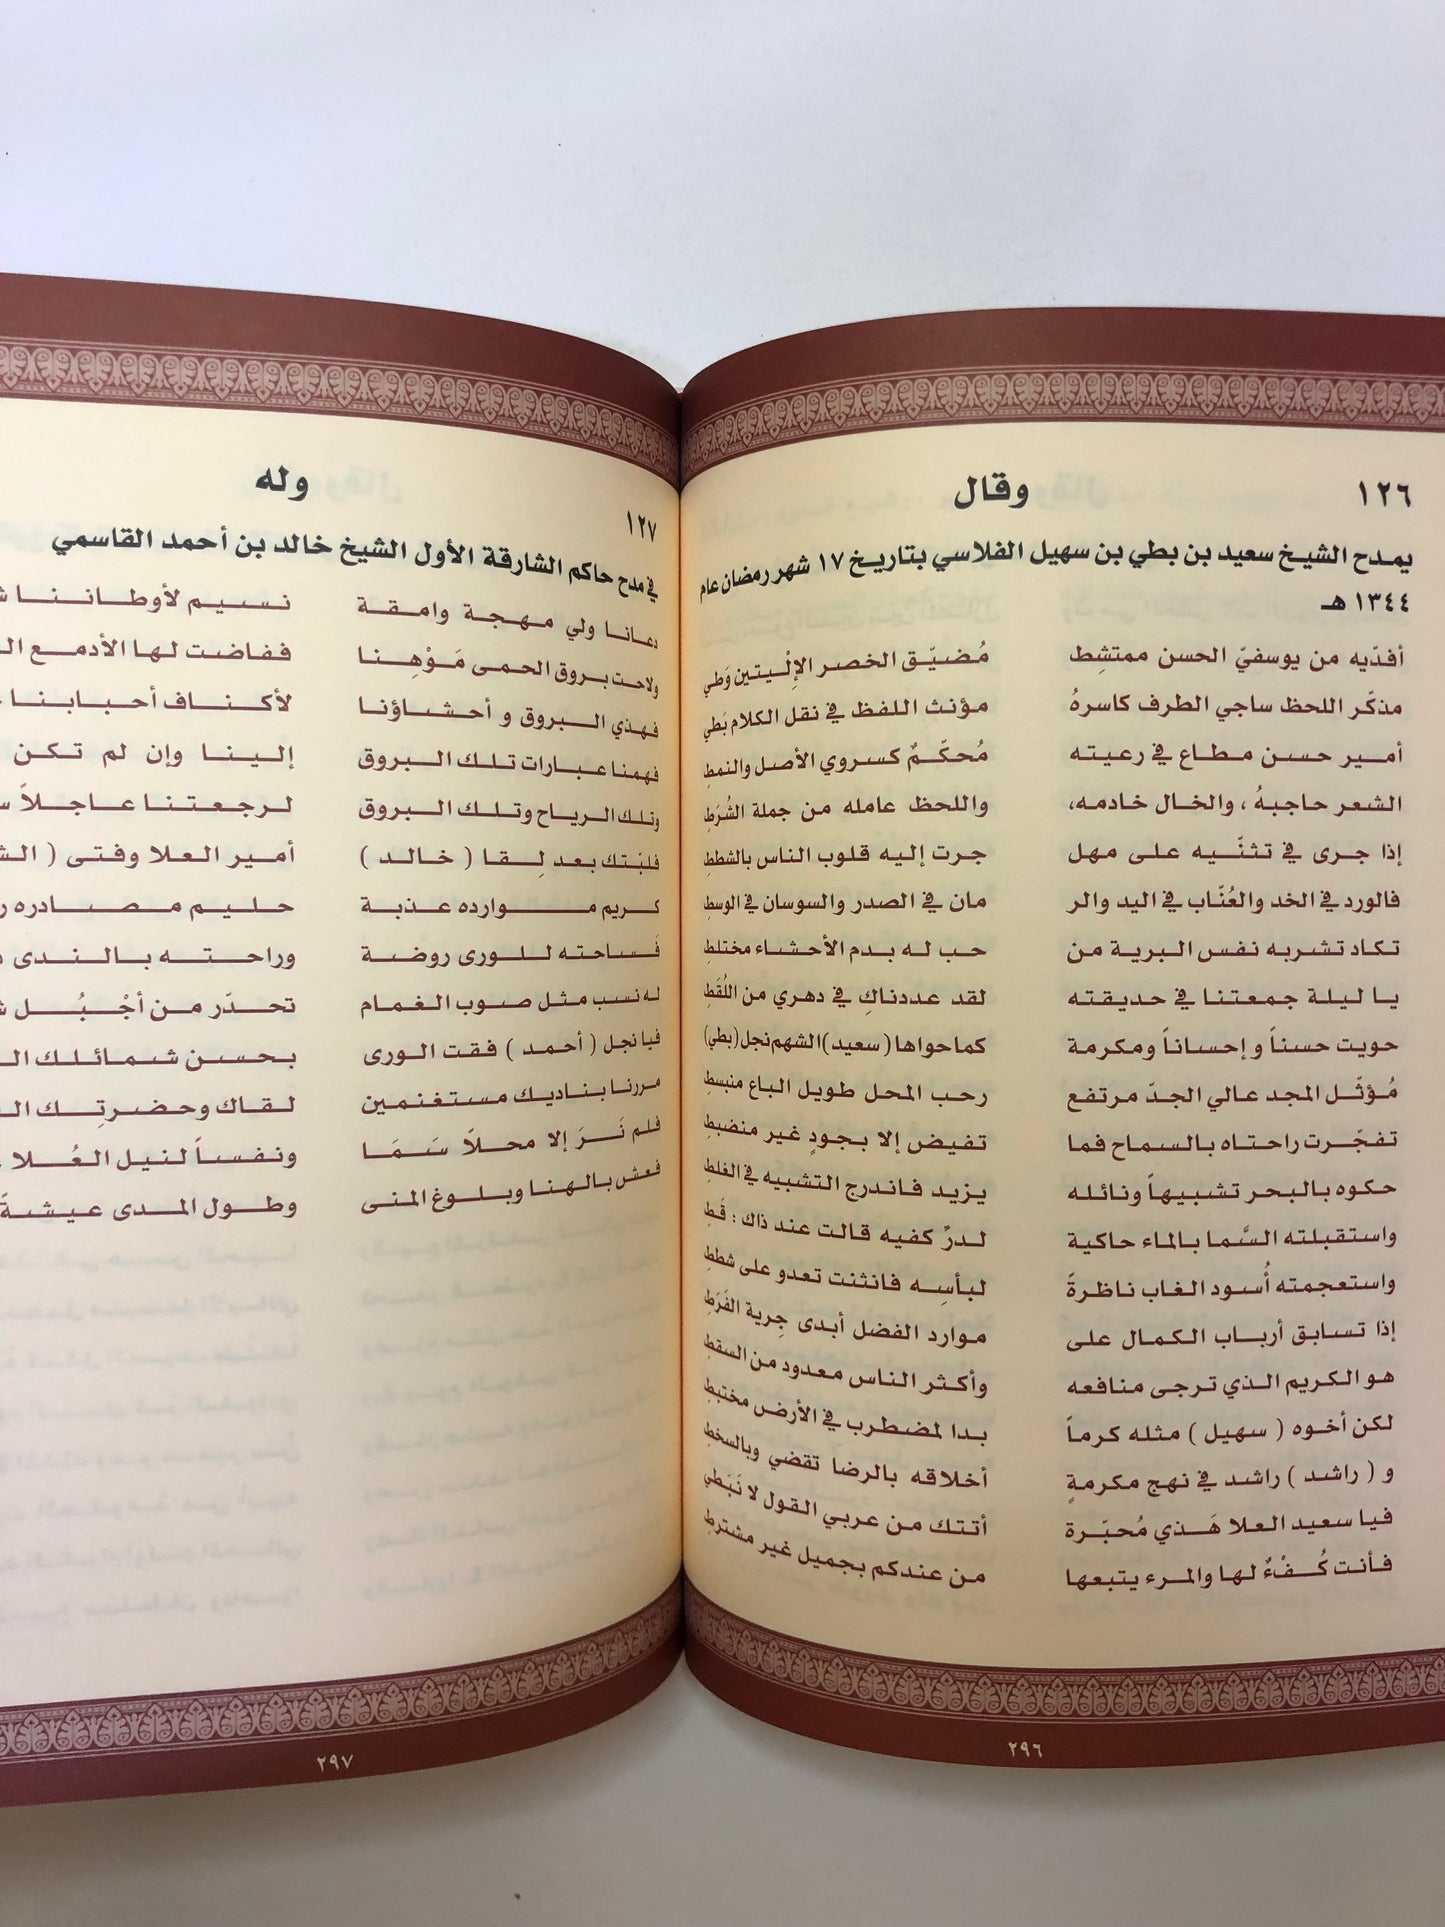 ١٢٦ وقال
يمدح الشيخ سعيد بن بطي بن سهيل الفلاسي بتاريخ ١٧ شهر رمضان عام
١٣٤٤ هـ
أفدّيه من يوسفيّ الحسن ممتشِط مُضيّق الخصر الإِلْيتين وَطي
مذكّر اللحظ ساجي الطرف كاسرهُ مؤنث اللفظ في نقل الكلام بَطي
أمير حسن مطاع في رعيته مُحكّمٌ كسروي الأصل والنمطِ
الشعر حاجبهُ ، والخال خادمه، واللحظ عامله من جملة الشُرَطِ
إذا جرى في تثنّيه على مهل جرت إليه قلوب الناس بالشططِ
فالورد في الخد والعُنّاب في اليد والر مان في الصدر والسوسان في الوسطِ
تكاد تشربه نفس البرية من حب له بدم الأحشاء مختلطِ
يا ليلة جمعتنا في حديقته لقد عددناكِ في دهري من اللُقَطِ
حويت حسناً و إحساناً ومكرمة كما حواها ( سعيد ) الشهم نجل ( بطي )
مُؤثّل المجد عالي الجدّ مرتفع رحب المحل طويل الباع منبسطِ
تفجّرت راحتاه بالسماح فما تفيض إلا بجودٍ غير منضبطِ
حكوه بالبحر تشبيهاً ونائله يزيد فاندرج التشبيه في الغلطِ
واستقبلته السَّما بالماء حاكية لدرِّ كفيه قالت عند ذاك : قَطِ
واستعجمته أُسود الغاب ناظرةً لبأسِه فانثنت تعدو على شططِ
إذا تسابق أرباب الكمال على موارد الفضل أبدى جِرية الفَرَطِ
هو الكريم الذي ترجى منافعه وأكثر الناس معدود من السقطِ
لكن أخوه ( سهيل ) مثله كرماً بدا لمضطرب في الأرض مختبطِ
و ( راشد ) راشد في نهج مكرمةٍ أخلاقه بالرضا تقضي وبالسخطِ
فيا سعيد العلا هَذي مُحبّرة أتتك من عربي القول لا نَبَطي
فأنت كُفْءٌ لها والمرء يتبعها من عندكم بجميل غير مشترطِ
٢٩٦
١٢٧ وله
في مدح حاكم الشارقة الأول الشيخ خالد بن أحمد القاسمي
دعانا ولي مهجة وامقة نسيم لأوطاننا
ولاحت بروق الحمى مَوْهِنا ففاضت لها الأدمع
فهذي البروق و أحشاؤنا لأكناف أحبابنا
فهمنا عبارات تلك البروق إلينا وإن لم تكن
وتلك الرياح وتلك البروق لرجعتنا عاجلاً
فلبّتك بعد لِقا ( خالد ) أمير العلا وفتى
كريم موارده عذبة حليم مصادره
فَساحته للورى روضة وراحته بالندى
له نسب مثل صوب الغمام تحدّر من أجْبُل
فيا نجل ( أحمد ) فقت الورى بحسن شمائلك
مررنا بناديك مستغنمين لقاك وحضرتِك
فلم نَرَ إلا محلاً سَمَا ونفساً لنيل العُلا
فعش بالهنا وبلوغ المنى وطول المدى عيشةً
٢٩٧